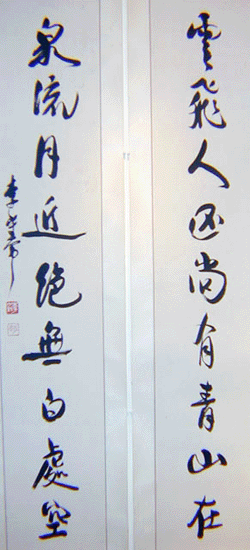 雲飛人尚有青山在
泉流月近絕無白處空